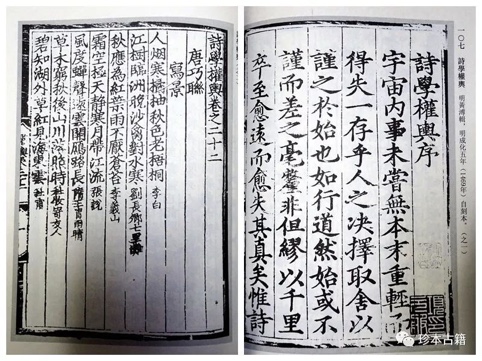 一〇七 詩學權輿 明黃溥輯，明成化五年（一四六九年）自刻本。（之一）
詩學權輿序
宇宙內事未嘗無本末重輕而
得失一存乎人之决擇取舍以
謹之於始也如行道然始或不
謹而差之毫釐非但繆以千里
卒至愈遠而愈失其真矣惟詩
詩學權輿卷之二十二
唐巧聯
寫景
人烟寒橘柚秋色老梧桐 李白
江樹臨洲晚沙禽對水寒 劉長卿七里灘
秋應為紅葉雨不厭蒼苔 李義山
霜空極天靜寒月帶江流 張說
風度蟬聲遠雲開鴈路長 雨晴
草木窮秋後山川落照時 杜牧寄友人
碧知湖外草紅見海東雲 杜甫
珍本古籍